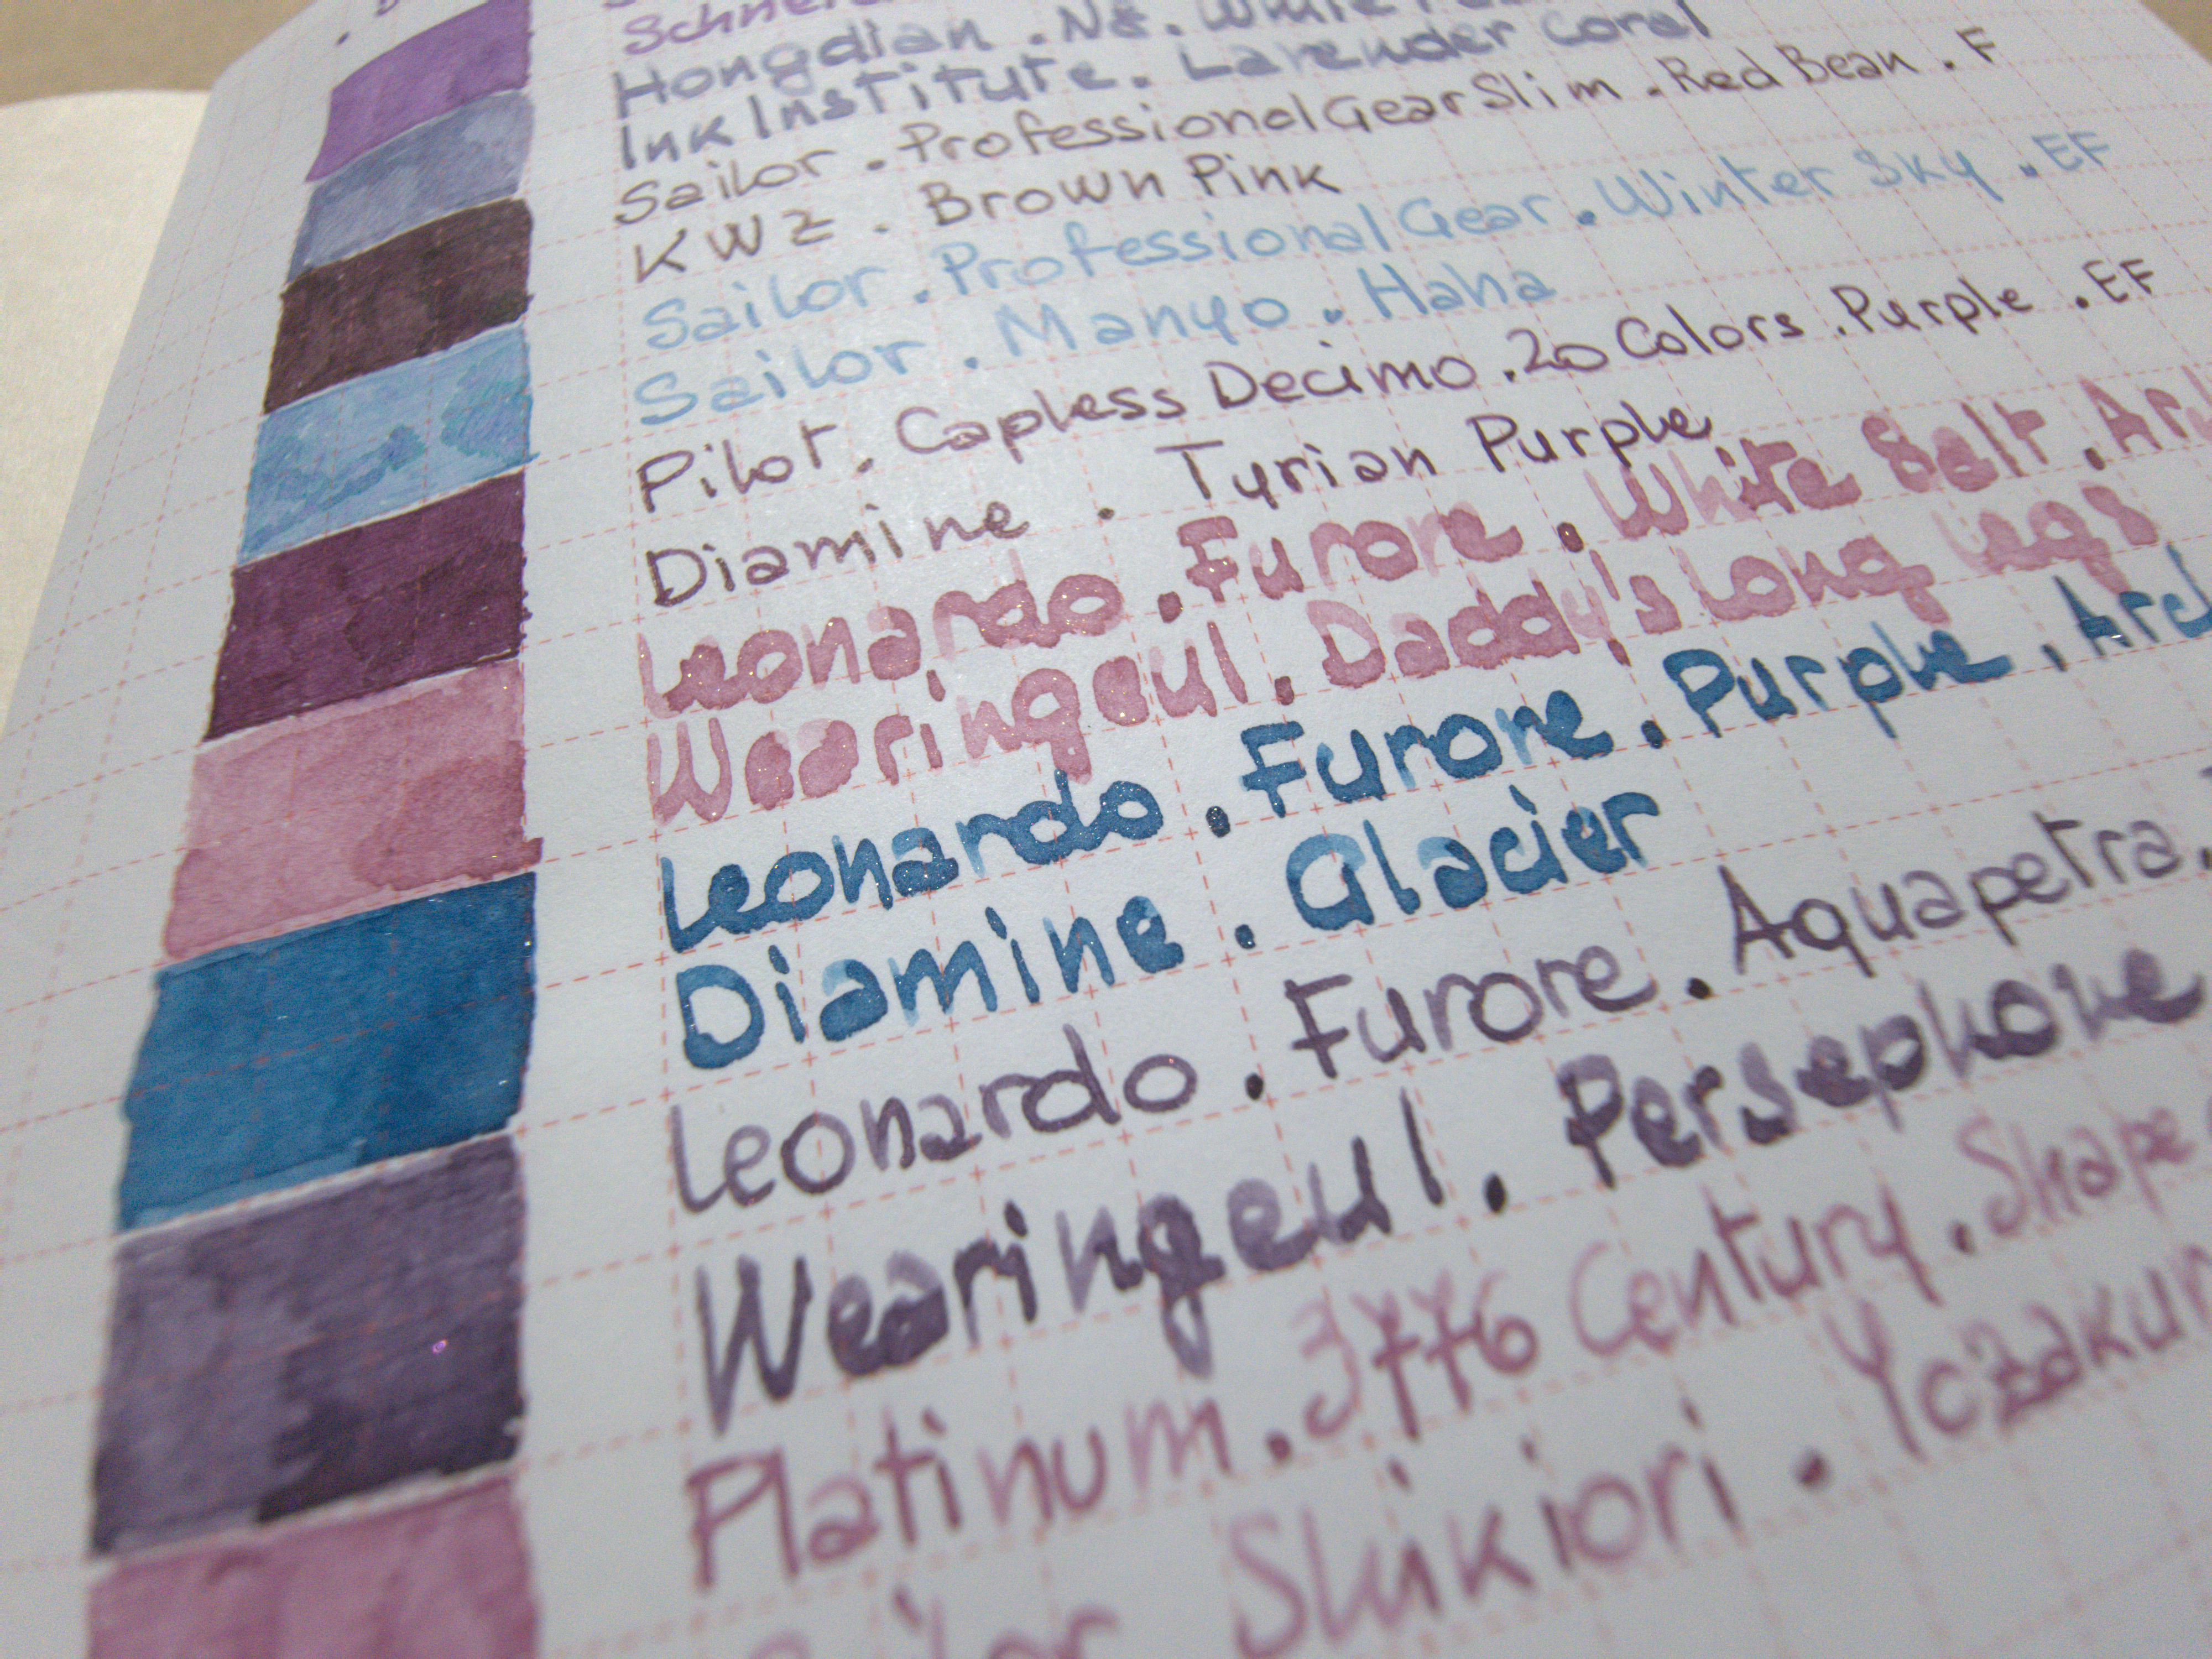 Hongdian . N8 . White
Ink Institute . Lavender Coral
Sailor . Professional Gear Slim . Red Bean . F
KWZ . Brown Pink
Sailor . Professional Gear . Winter Sky . EF
Sailor . Manyo . Haha
Pilot . Capless Decimo . 20 Colors . Purple . EF
Diamine . Tyrian Purple
Leonardo . Furore . White Salt .
Wearingeul . Daddy's Long Legs
Leonardo . Furore . Purple .
Diamine . Glacier
Leonardo . Furore . Aquapetra .
Wearingeul . Persephone
Platinum . 3776 Century . Shape
Shikiori .